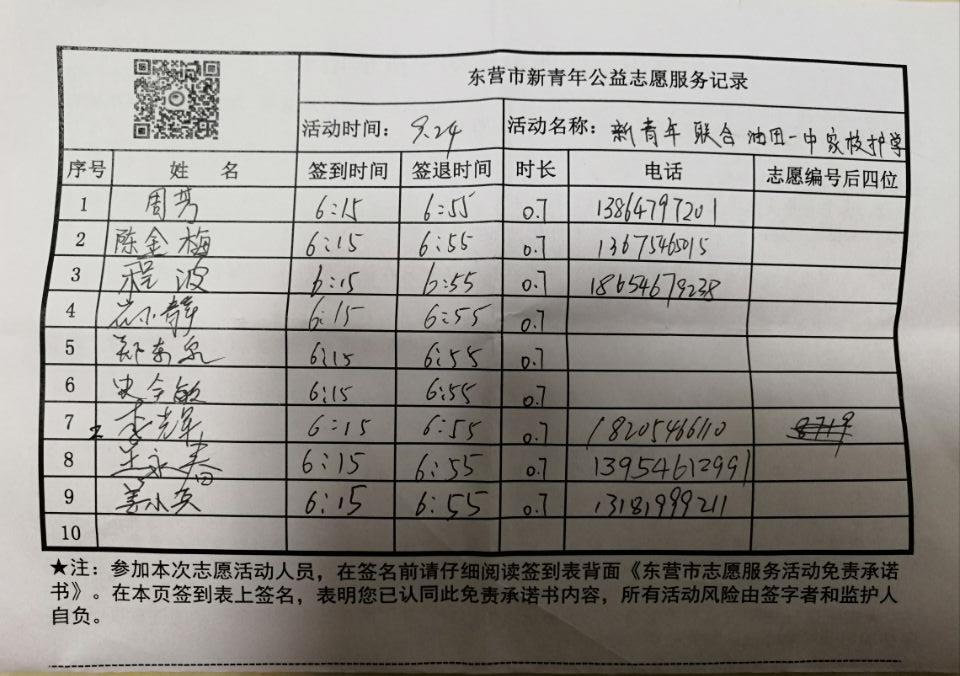 东营市新青年公益志愿服务记录
活动时间： 9.24 活动名称： 新青年 联合 油田一中 家校护学
序号 姓 名 签到时间 签退时间 时长 电话 志愿编号后四位
1 周芳 6:15 6:55 0.7 13864797201
2 陈金梅 6:15 6:55 0.7 13675465015
3 程波 6:15 6:55 0.7 18654679238
4 6:15 6:55 0.7
5 6:15 6:55 0.7
6 史今敏 6:15 6:55 0.7
7 李光军 6:15 6:55 0.7 18205466110 8719
8 6:15 6:55 0.7 13954612991
9 姜小英 6:15 6:55 0.7 13181999211
10
★注：参加本次志愿活动人员，在签名前请仔细阅读签到表背面《东营市志愿服务活动免责承诺
书》。在本页签到表上签名，表明您已认同此免责承诺书内容，所有活动风险由签字者和监护人
自负。